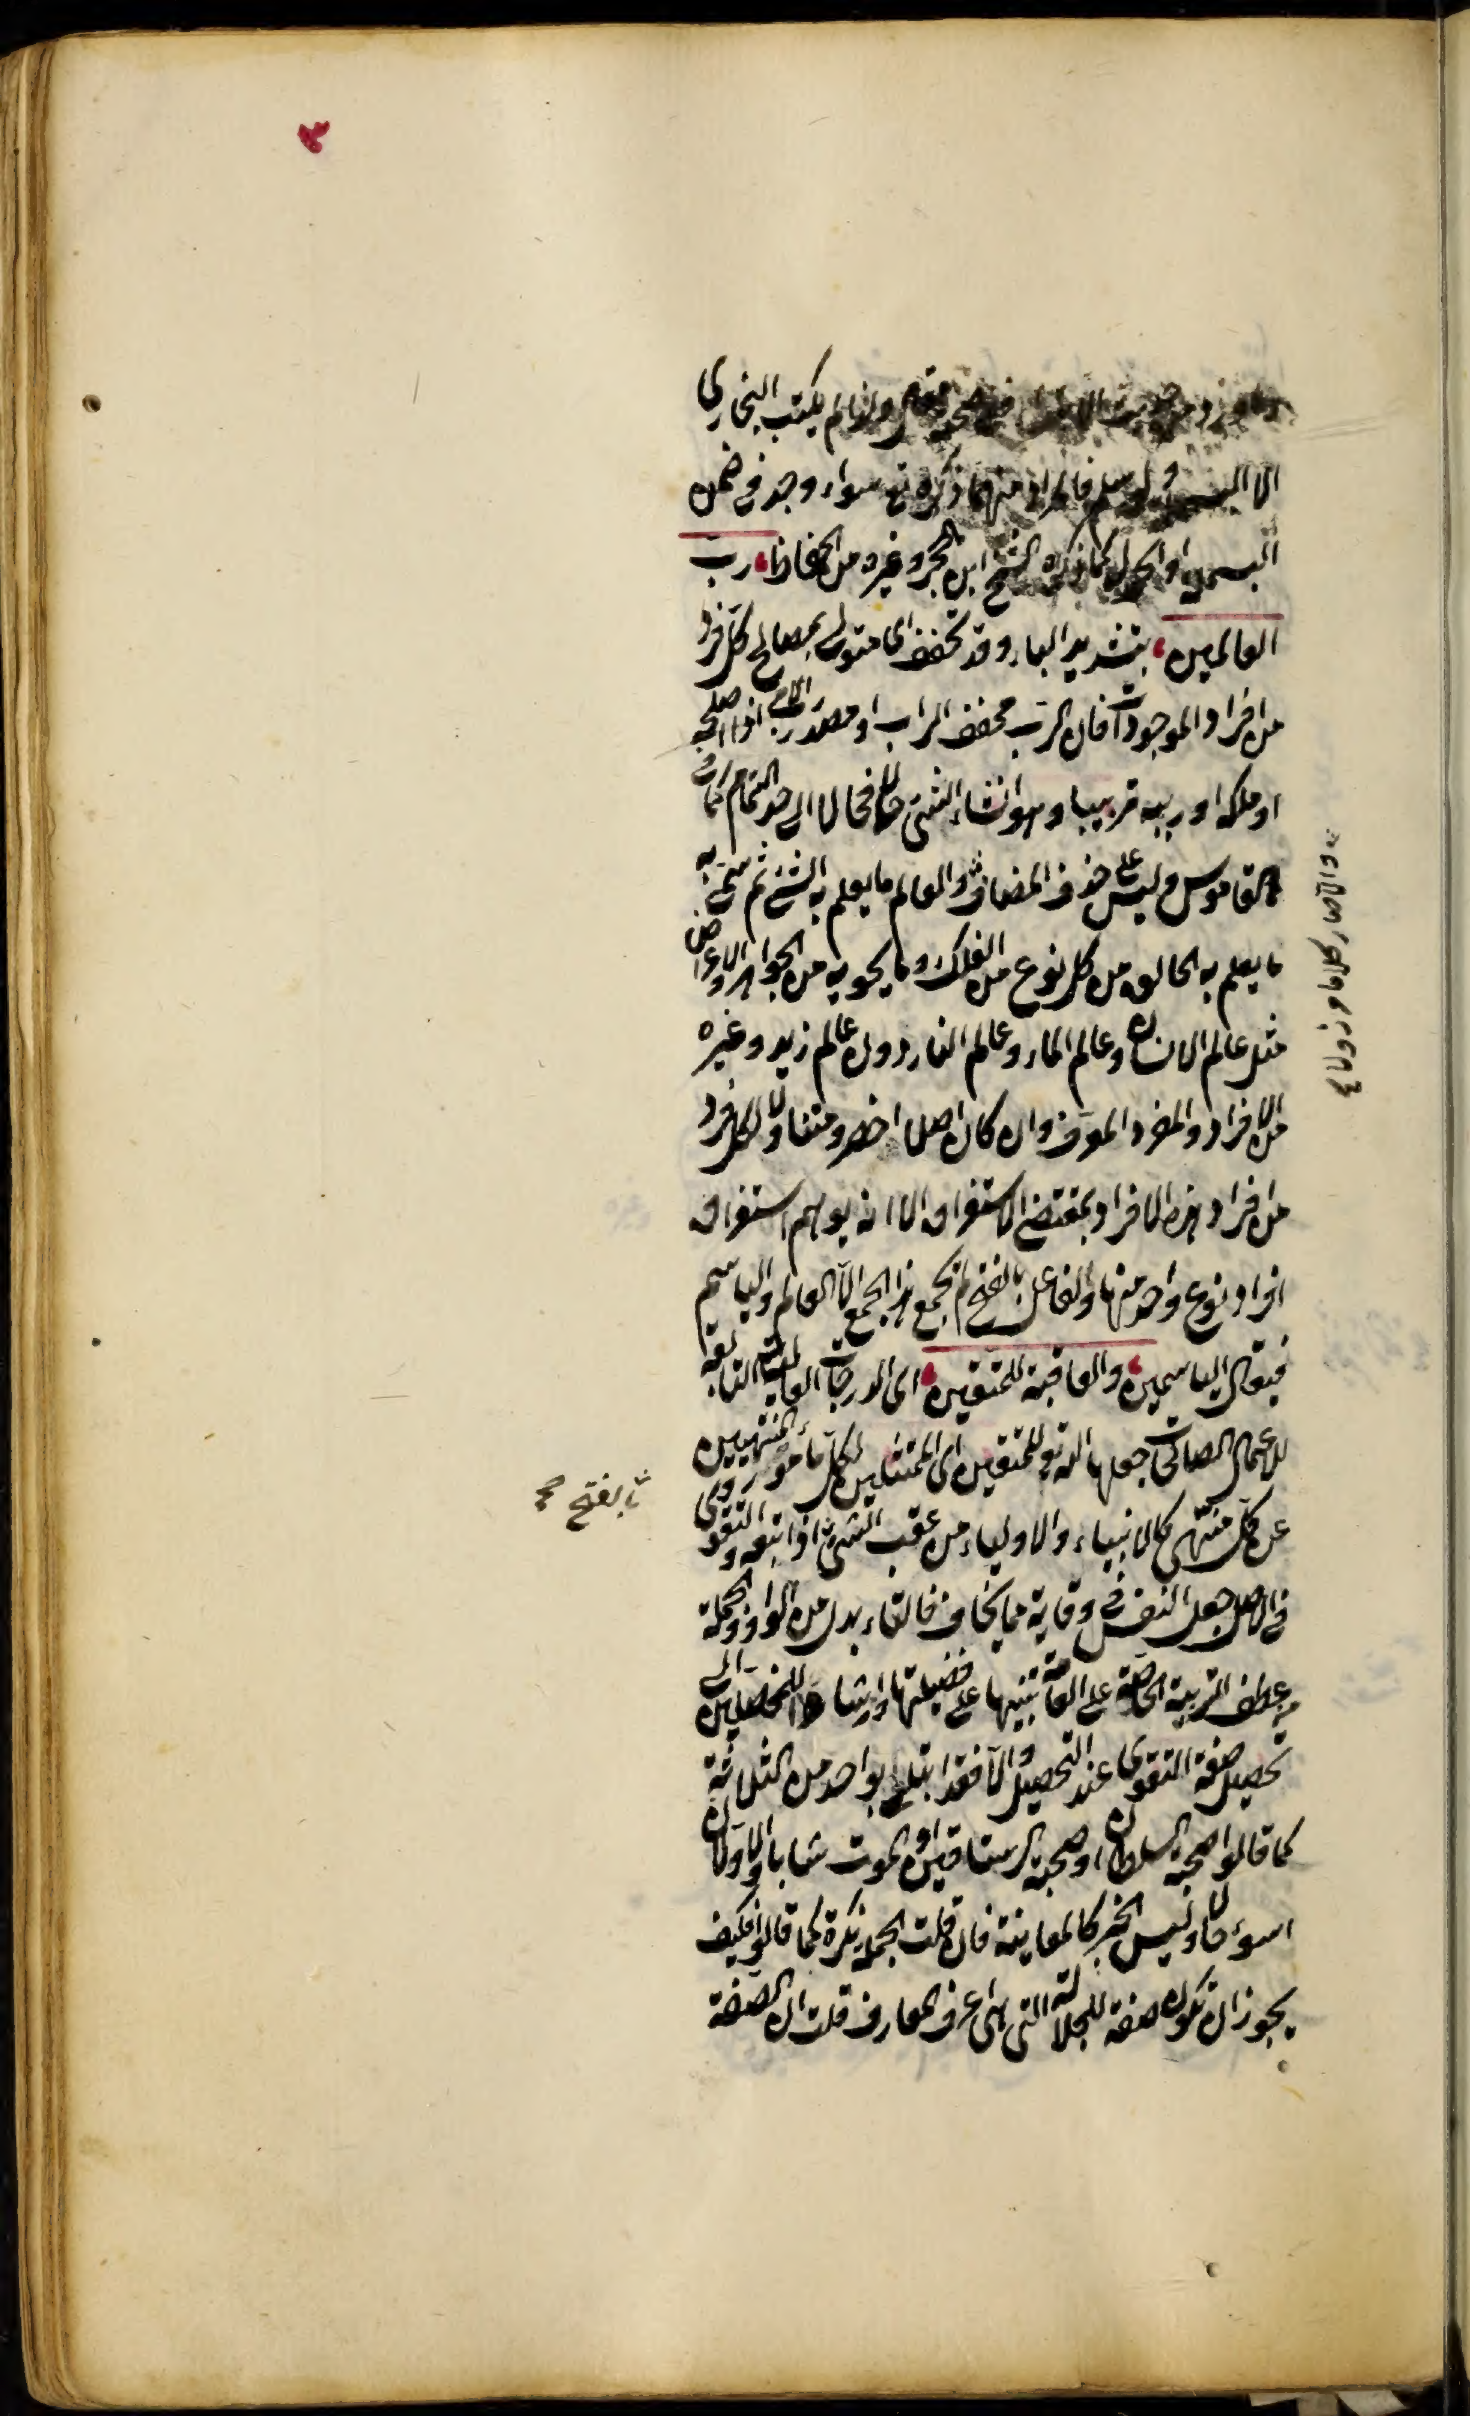 ولذا لم يكتب البخاري
الا البسملة فالمراد منهما ذكره تع سواء وجد في ضمن
البسملة او الحمدلة كما ذكره الشيخ ابن الحجر وغيره من الحفاظ، رب
العالمين، بتشديد الباء وقد تخفف اى متولى بمصالح كل فرد
من افراد الموجودات فان الرب مخفف الراب او مصدر رب الامر اذا اصلحه
او ملكه او ربيه تربيبا وهو انشاء الشئ حالا فحالا الى حد التمام كما في
القاموس وليس على حذف المضاف والعالم ما يعلم به الشئ ثم سمى به
ما يعلم به الخالق من كل نوع من الفلك وما يحويه من الجواهر والاعراض
مثل عالم الانسان وعالم الماء وعالم النار دون عالم زيد وغيره
من الافراد والمفرد المعرف وان كان اصلا اخصر ومتناولا لكل فرد
من افراد هذه الافراد بمقتضى الاستغراق الا انه يوهم استغراق
افراد نوع واحد منها والفاعل بالفتح لم يجمع هذا الجمع الا العالم والياسم
فيقال الياسمين، والعاقبة للمتقين، اى الدرجات العالية التابعة
للاعمال الصالحات جعلها الله تع للمتقين اى الممتثلين لكل مأمور والمنتهيين
عن كل منتهى كالانبياء والاولياء من عقب الشئ اذا اتبعه والتقوى
في الاصل جعل النفس في وقاية مما يخاف فالتاء بدل من الواو والجملة
من عطف التربية الخاصة على العامة تنبيها على فضيلتها وارشادا للمحصلين الى
تحصيل صفة التقوى عند التحصيل والا فقد ابتلى بواحد من الثلاثة
كما قالوا صحبة السلطان او صحبة الرستاقيين او الموت شابا والاولان
اسوء حالا وليس الخبر كالمعاينة فان قلت الجملة نكرة كما قالوا فكيف
يجوز ان تكون صفة للجلالة التي هى اعرف المعارف قلت ان الصفة
بالفتح